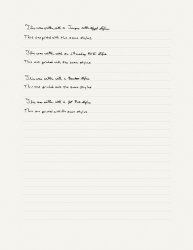 This was written with a stylus
This was printed with the same stylus
This was written with an stylus
This was printed with the same stylus
This was written with a Bamboo Stylus
This was printed with the same stylus
This was written with a Jot Pro stylus
This was printed with the same stylus